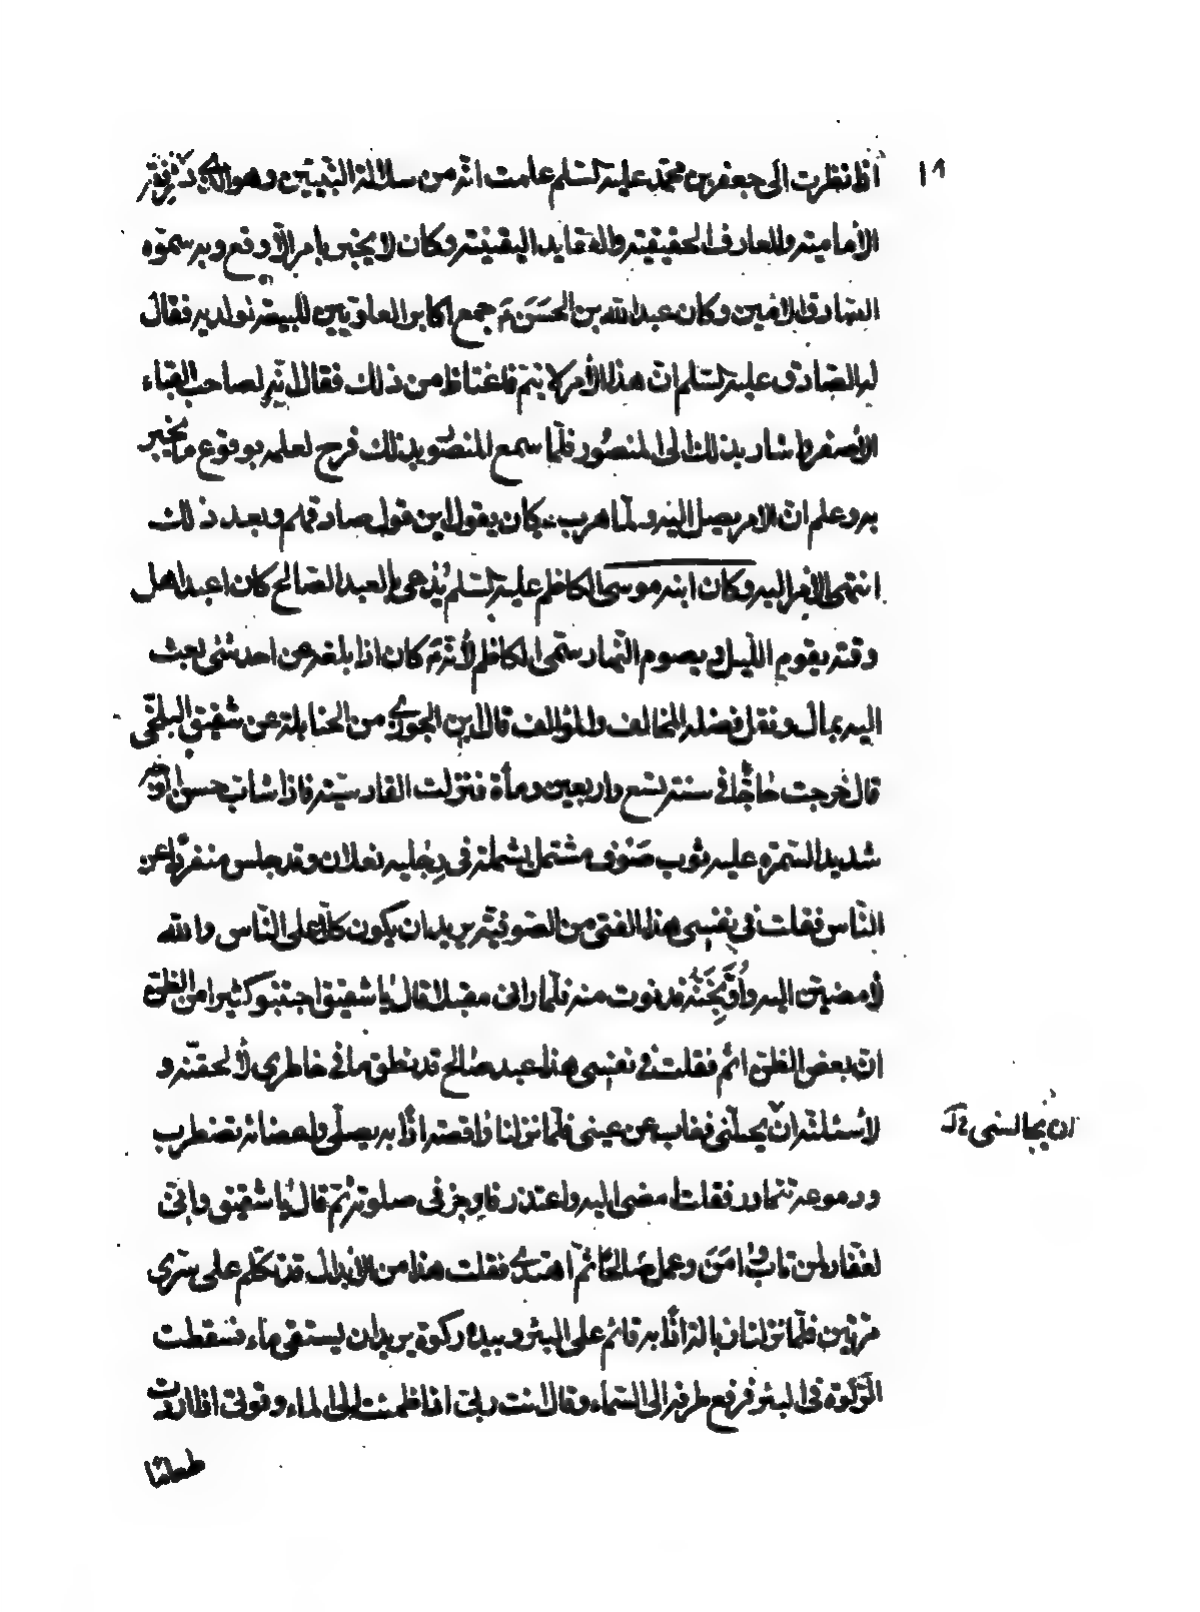 ١٩
اذا نظرت الى جعفر بن محمد عليه السلم علمت انّه من سلالة النبيّين وهو الذي نشر فقه
الأماميته والمعارف الحقيقيته والعقايد اليقينيته وكان لا يخبر بامر الّا وقع وبه سموه
الصادق الامين وكان عبد الله بن الحَسَن جمع اكابر العلويّين للبيعة لولديه فقال
له الصّادق عليه السلم انّ هذا الأمر لا يتم فاغتاظ من ذلك فقال انّه لصاحب القباء
الأصفر واشار بذلك الى المنصُور فلمّا سمع المنصُور بذلك فرح لعلمه بوقوع ما يخبر
به وعلم انّ الامر يصل اليه ولمّا هرب كان يقول اين قول صادقهم وبعد ذلك
انتهى الأمر اليه وكان ابنه موسى الكاظم عليه السلم يُدعى بالعبد الصّالح كان اعبد اهل
وقته يقوم اللّيل ويصوم النّهار سمّى الكاظم لأنّه كان اذا بلغه عن احد شئى بعث
اليه بمال ونقل فضله المخالف والمؤالف قال ابن الجوزي من الحنابلة عن شقيق البلخّى
قال خرجت حٰاجّا فى سنته تسع واربعين ومأة فنزلت القادسيّته فاذا شابّ حسن الوجه
شديد السّمرة عليه ثوب صُوف مشتمل بشملة فى رِجليه نعلان وقد جلس منفردًا عن
النّاس فقلت فى نفسى هذا الفتى من الصّوفيّة يريد ان يكون كلّا على النّاس والله
لأمضينّ اليه وأُوَبِّخَنَّه فدنوت منه فلمّا رانى مقبلا قال يٰا شقيق اجتنبو كثيرا من الظنّ
انّ بعض الظنّ اثم فقلت فى نفسى هذا عبد صٰالح قد نطق بما فى خاطرى لألحقنّه و
لأسئلنّه انّ يحلّنى فغاب عن عينى فلمّا نزلنا وٰاقصة اذًا به يصلّى واعضائه تضطرب
ان يجالسنى
ودموعه تتحادر فقلت امضى اليه واعتذر فاوجز فى صلوته ثمّ قال يٰا شقيق وانّى
لغفّار لمن تاب وٰامَنَ وعمل صٰالحًا ثمّ اهتدى فقلت هذا من الأبدال قد تكلّم على سرّى
مرّتين فلمّا نزلنا زبالة اذًا به قائم على البئر وبيده ركوة يريد ان يستقى ماء فسقطت
الرّكوة فى البئر فرفع طرفه الى السّمآء وقال انت ربّى اذا ظمئت الى الماء وقوتى اذا اردت
طعامًا